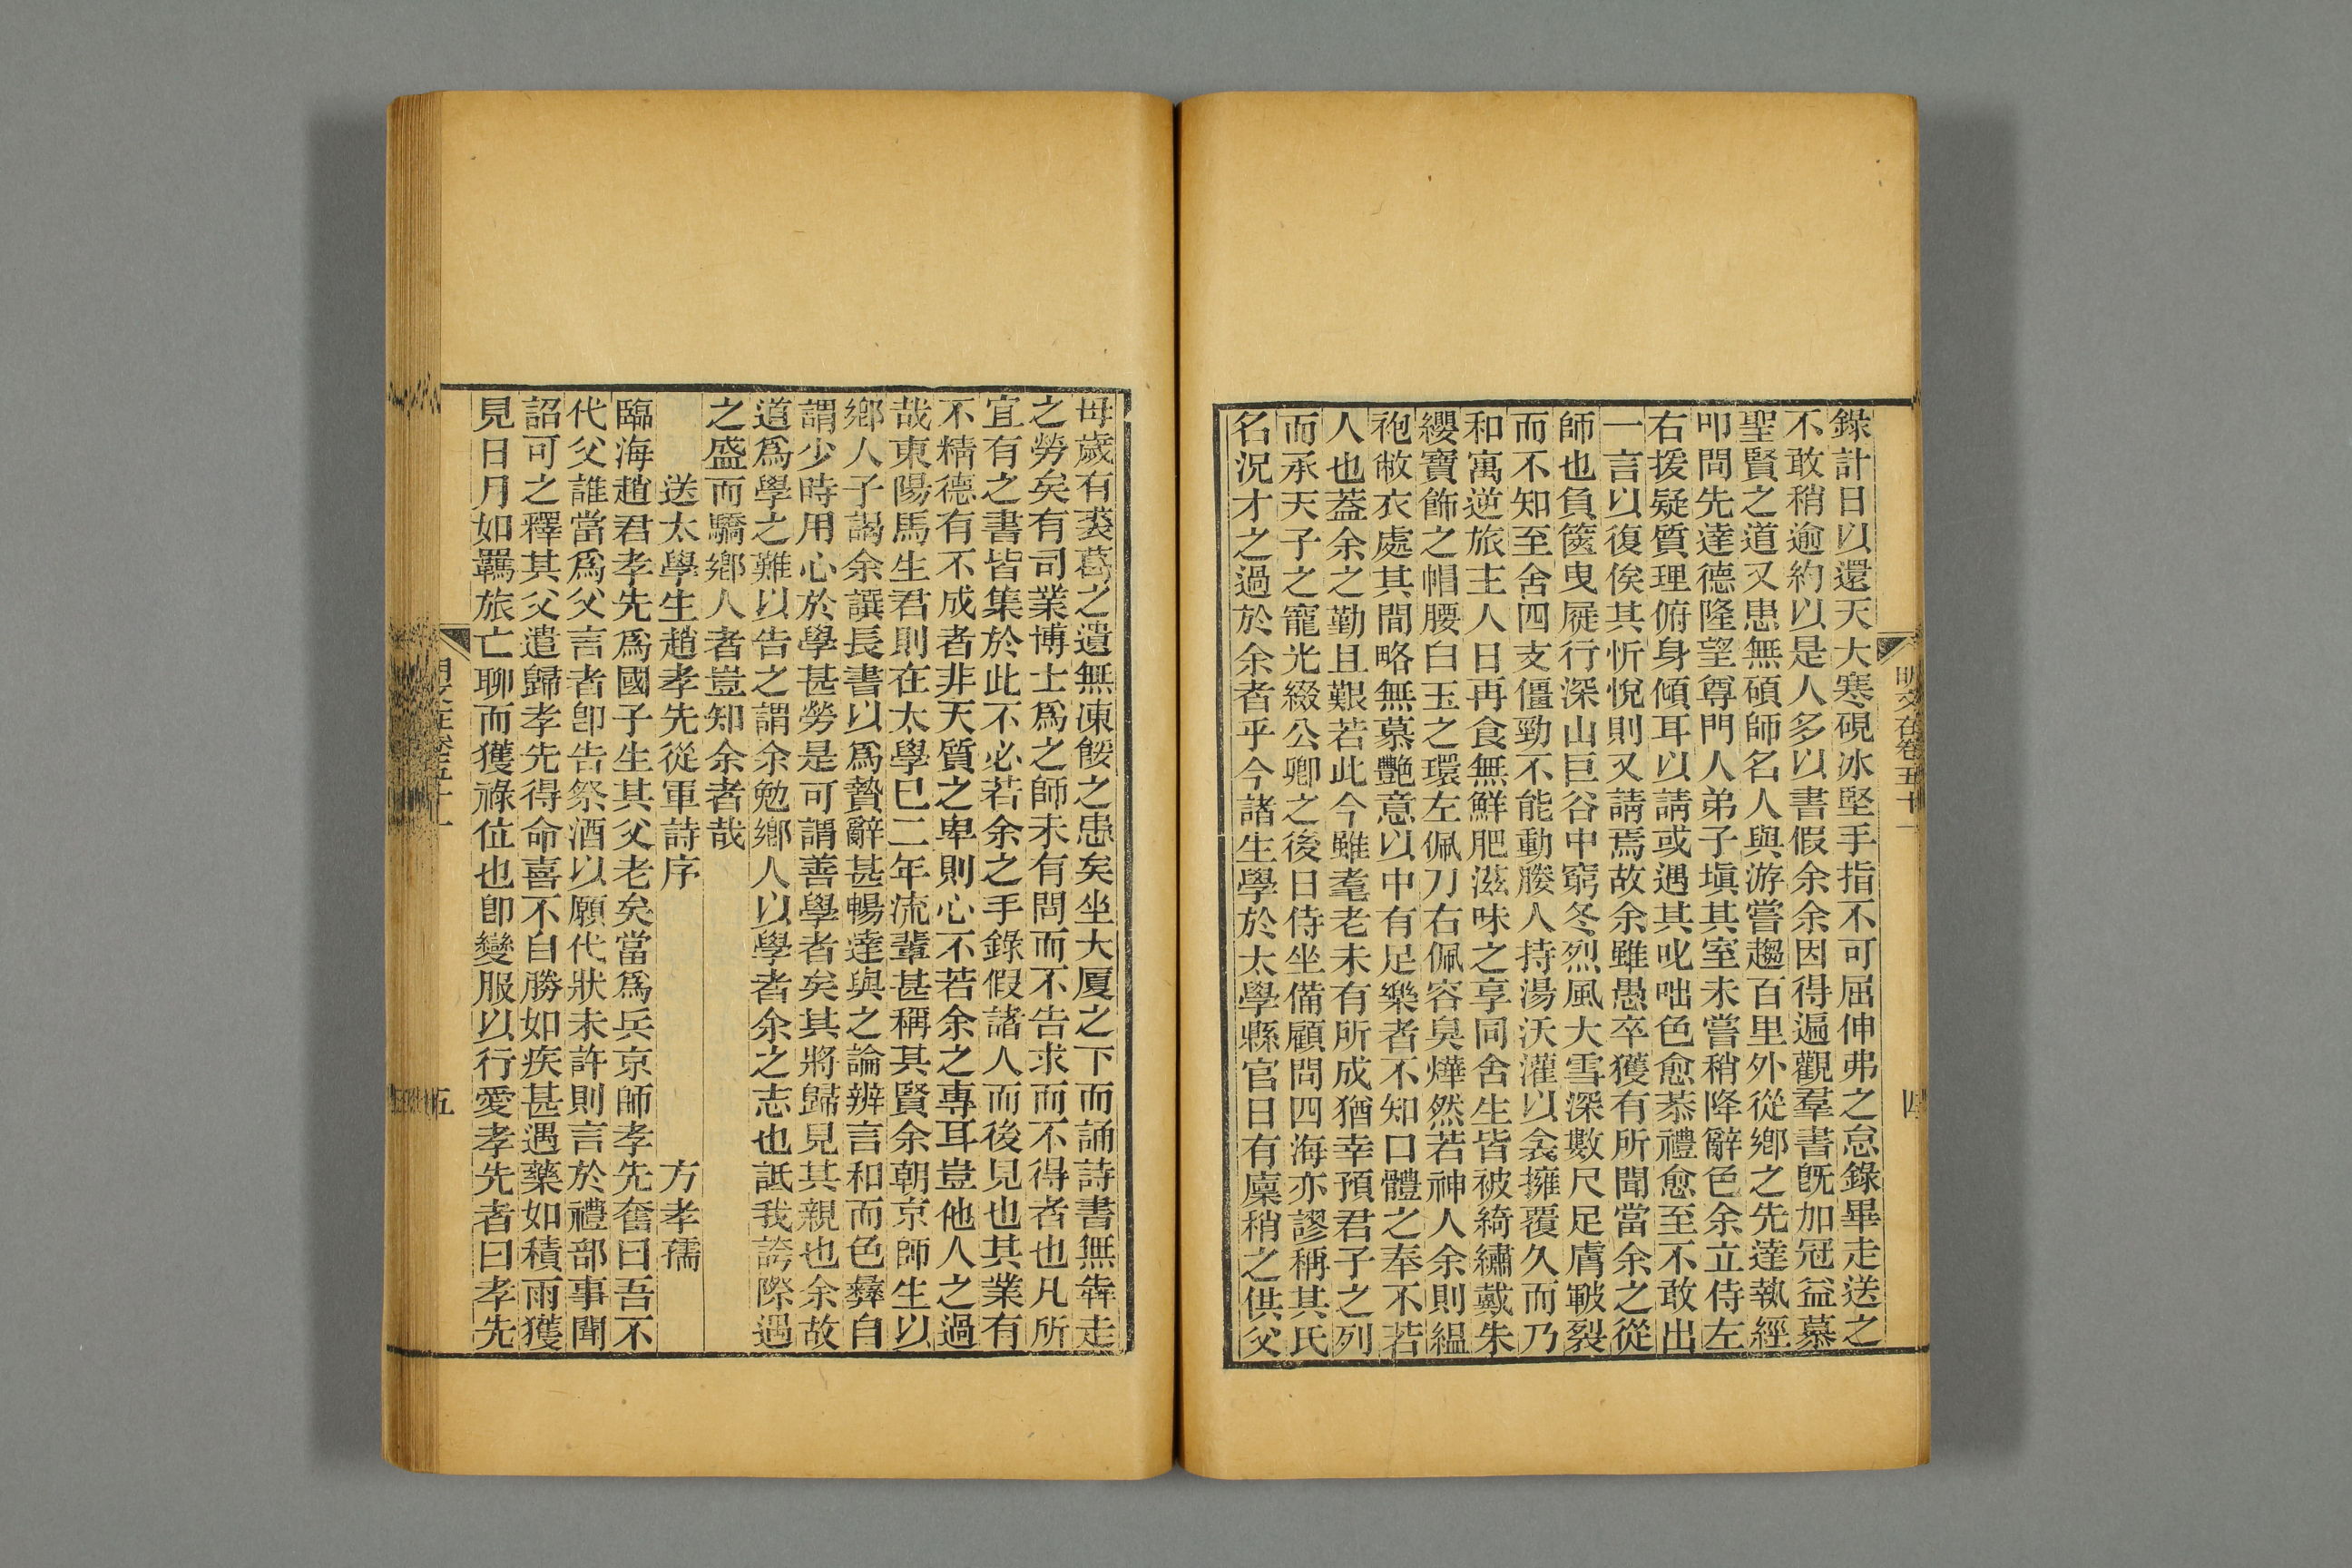 錄計日以還天大寒硯冰堅手指不可屈伸弗之怠錄畢走送之
不敢稍逾約以是人多以書假余余因得遍觀羣書旣加冠益慕
聖賢之道又患無碩師名人與游嘗趨百里外從鄉之先達執經
叩問先達德隆望尊門人弟子塡其室未嘗稍降辭色余立侍左
右援疑質理俯身傾耳以請或遇其叱咄色愈恭禮愈至不敢出
一言以復俟其忻悅則又請焉故余雖愚卒獲有所聞當余之從
師也負篋曳屣行深山巨谷中窮冬烈風大雪深數尺足膚皸裂
而不知至舍四支僵勁不能動媵人持湯沃灌以衾擁覆久而乃
和寓逆旅主人日再食無鮮肥滋味之享同舍生皆被綺繡戴朱
纓寶飾之帽腰白玉之環左佩刀右佩容臭燁然若神人余則縕
袍敝衣處其間略無慕艷意以中有足樂者不知口體之奉不若
人也蓋余之勤且艱若此今雖耄老未有所成猶幸預君子之列
而承天子之寵光綴公卿之後日侍坐備顧問四海亦謬稱其氏
名況才之過於余者乎今諸生學於太學縣官日有廩稍之供父
明文在卷五十一
四
母歲有裘葛之遺無凍餒之患矣坐大厦之下而誦詩書無犇走
之勞矣有司業博士爲之師未有問而不告求而不得者也凡所
宜有之書皆集於此不必若余之手錄假諸人而後見也其業有
不精德有不成者非天質之卑則心不若余之專耳豈他人之過
哉東陽馬生君則在太學已二年流輩甚稱其賢余朝京師生以
鄉人子謁余譔長書以爲贄辭甚暢達與之論辨言和而色彝自
謂少時用心於學甚勞是可謂善學者矣其將歸見其親也余故
道爲學之難以告之謂余勉鄉人以學者余之志也詆我誇際遇
之盛而驕鄉人者豈知余者哉
送太學生趙孝先從軍詩序
方孝孺
臨海趙君孝先爲國子生其父老矣當爲兵京師孝先奮曰吾不
代父誰當爲父言者卽告祭酒以願代狀未許則言於禮部事聞
詔可之釋其父遣歸孝先得命喜不自勝如疾甚遇藥如積雨獲
見日月如羈旅亡聊而獲祿位也卽變服以行愛孝先者曰孝先
五